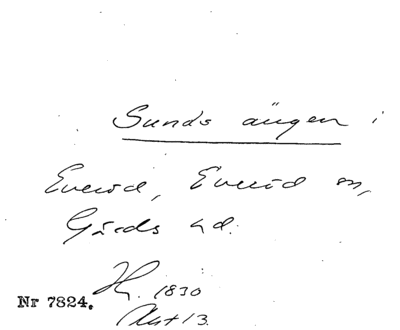 Sunds ängen i
Everöd, Everöd sn,
Gärds hd.
H. 1830
Nr 7824.
Akt 13.